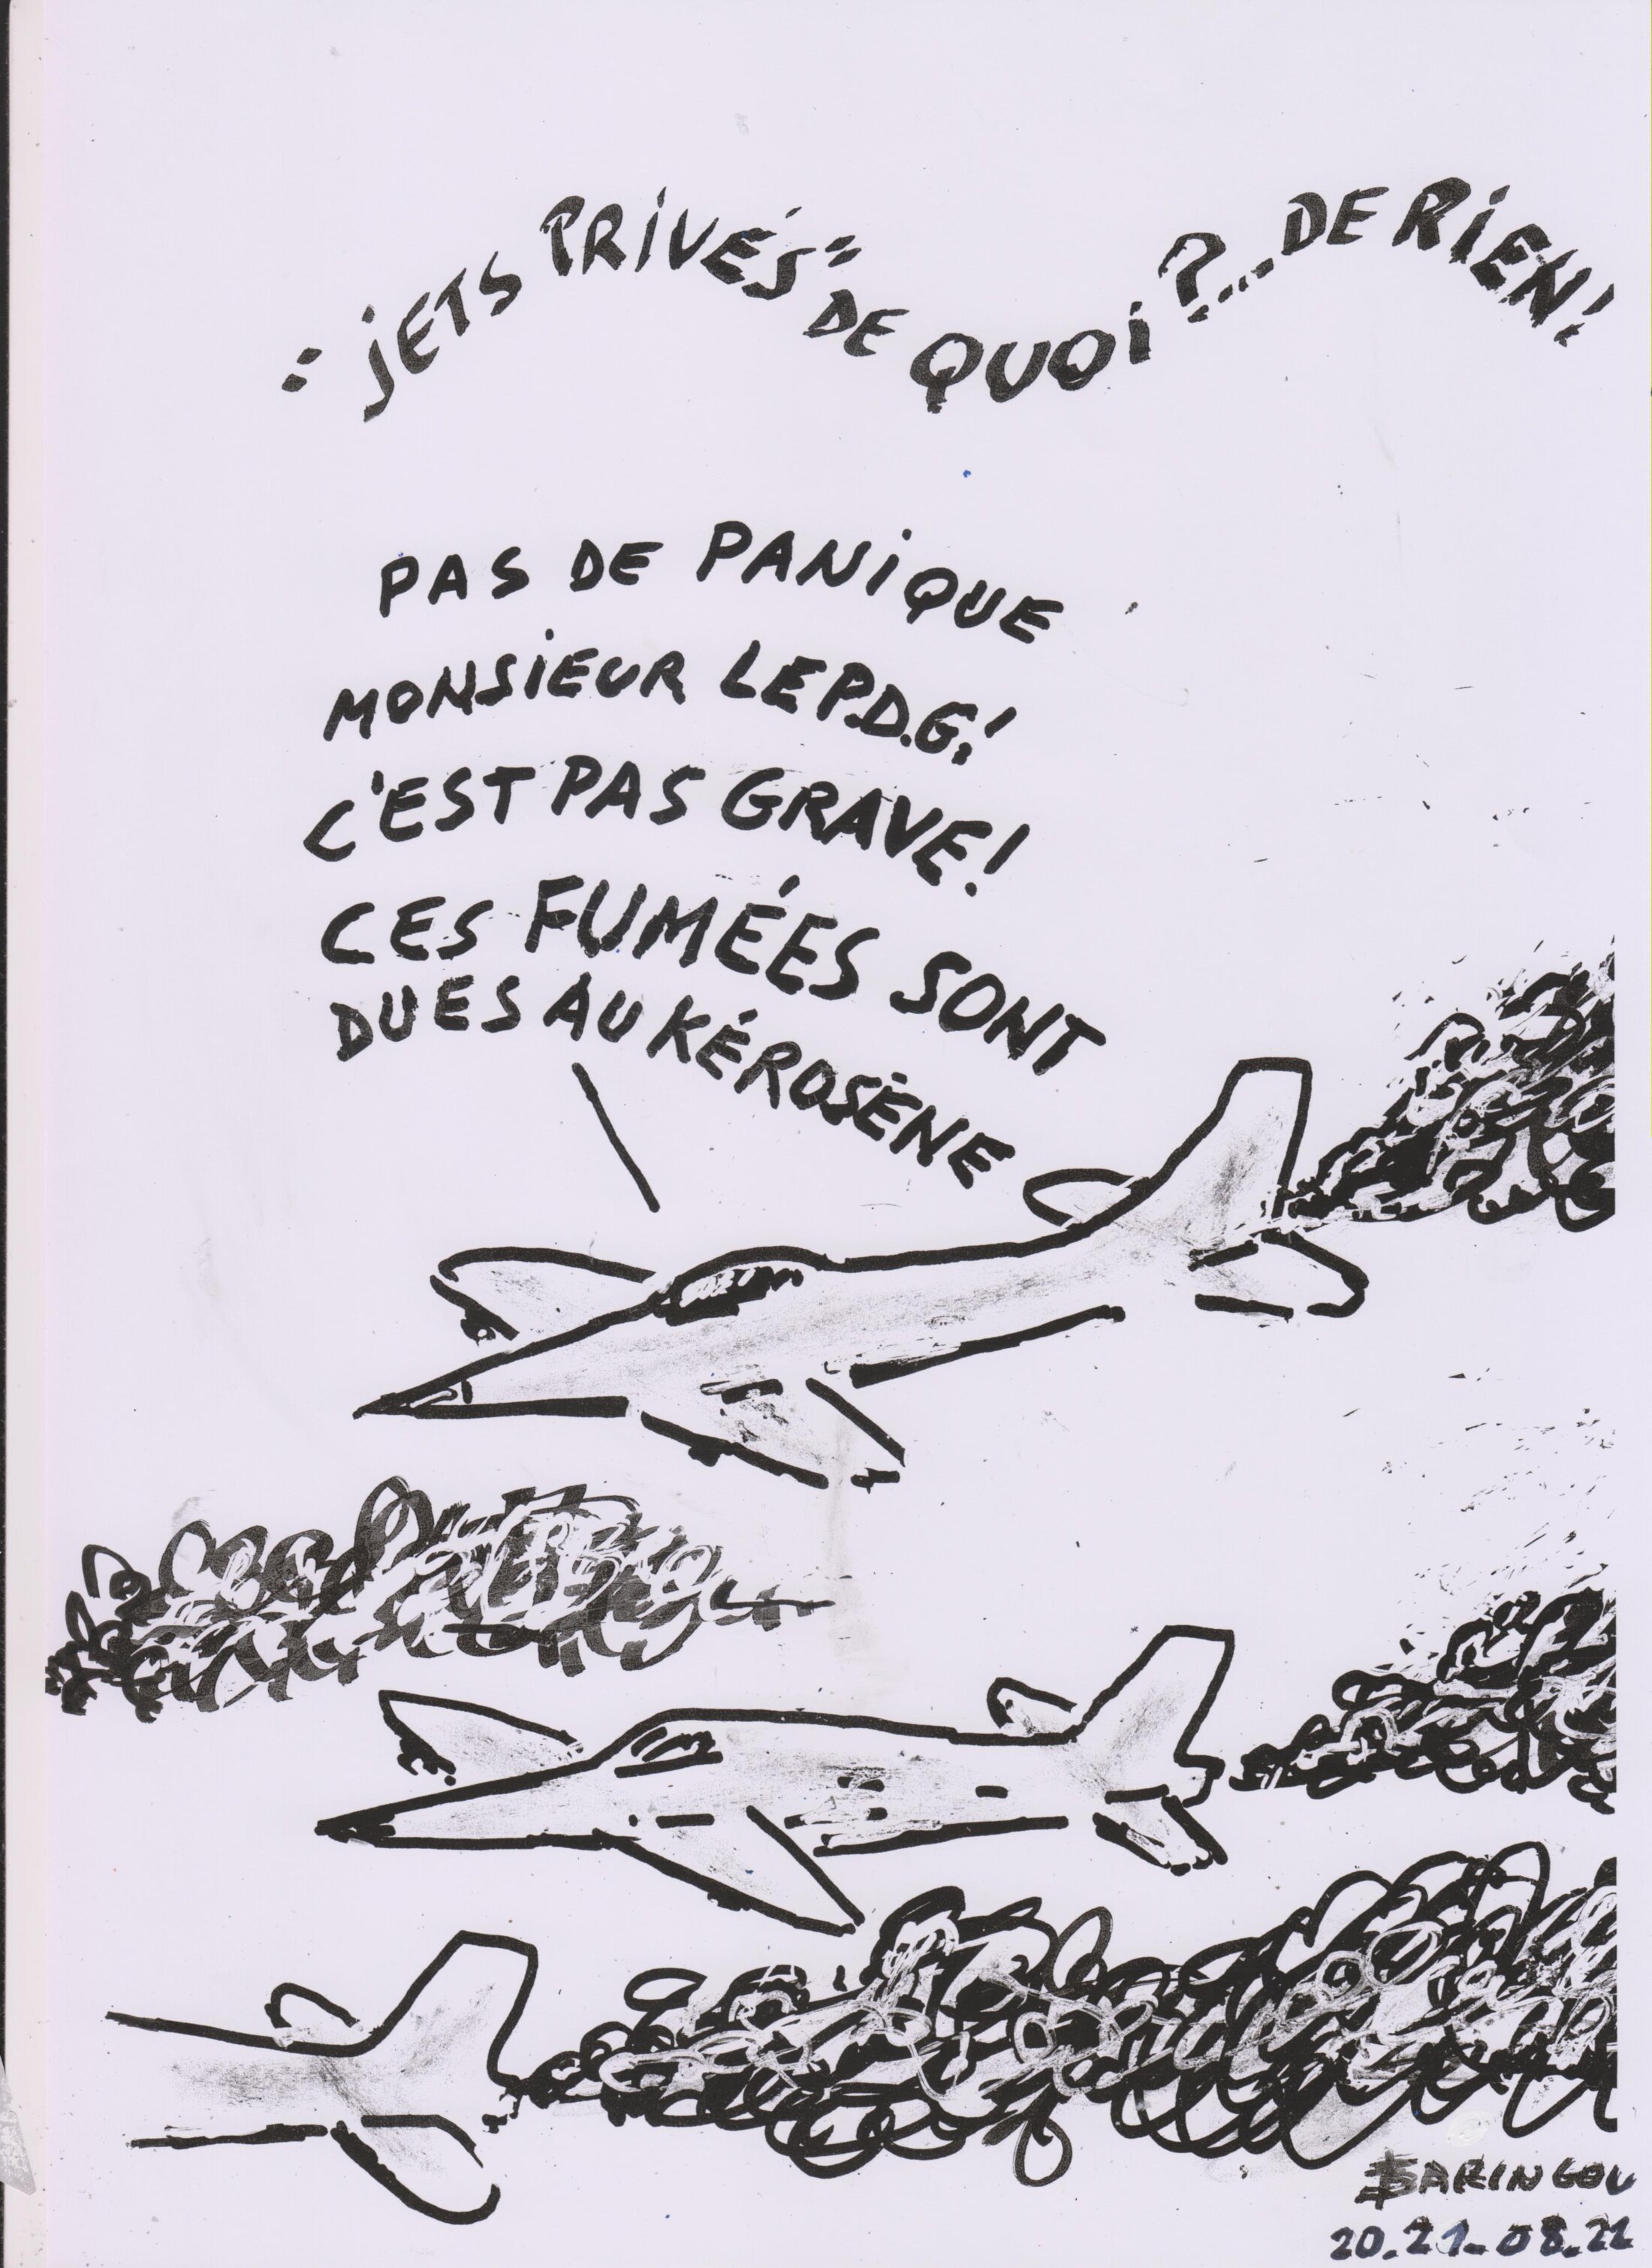 "JETS PRIVÉS" DE QUOI?... DE RIEN!
PAS DE PANIQUE
MONSIEUR LE P.D.G.!
C'EST PAS GRAVE!
CES FUMÉES SONT
DUES AU KÉROSÈNE
BARINGOU
20.21-08.22